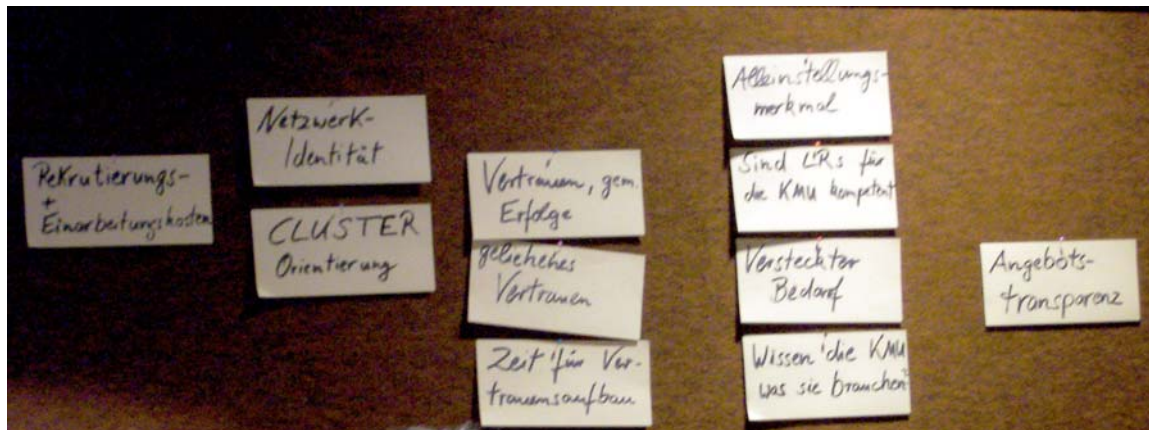 Rekrutierungs-
+
Einarbeitungskosten
Netzwerk-
Identität
CLUSTER
Orientierung
Vertrauen, gem.
Erfolge
geliehenes
Vertrauen
Zeit für Ver-
trauensaufbau
Alleinstellungs-
merkmal
Sind LRs für
die KMU kompetent
Versteckter
Bedarf
Wissen die KMU
was sie brauchen?
Angebots-
transparenz